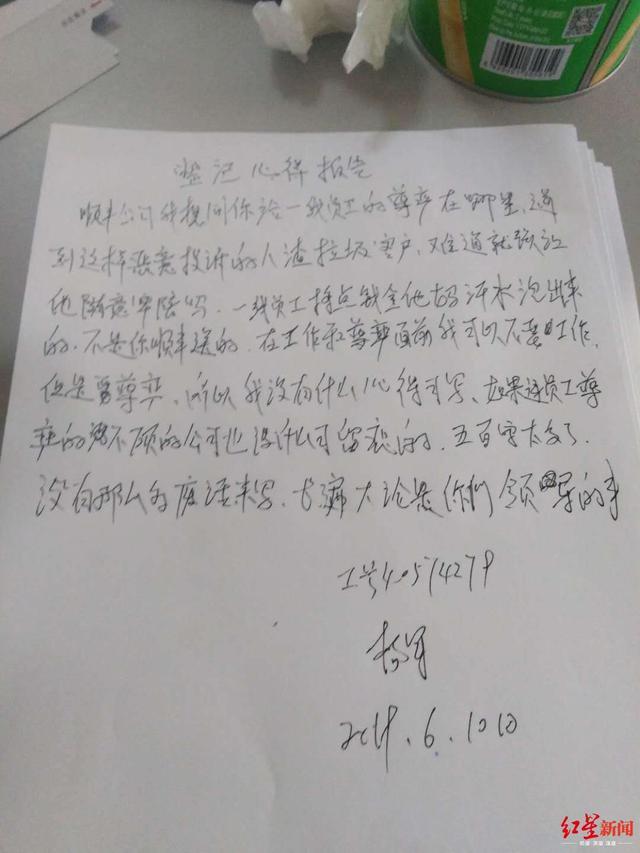 登记心得报告
顺丰公司我想问你给一线员工的尊严在哪里,遇
到这样恶意投诉的人渣垃圾客户,难道就该让
他随意 吗.一线员工挣点钱全他妈汗水泡出来
的.不是你顺丰送的.在工作和尊严面前我可以不要工作,
但是要尊严,所以我没有什么心得可写,如果连员工尊
严的都不顾的公司也没什么可留恋的.五百字太多了.
没有那么多废话来写.长篇大论是你们领导的事
工号40574279
杨军
2019.6.10日
红星新闻